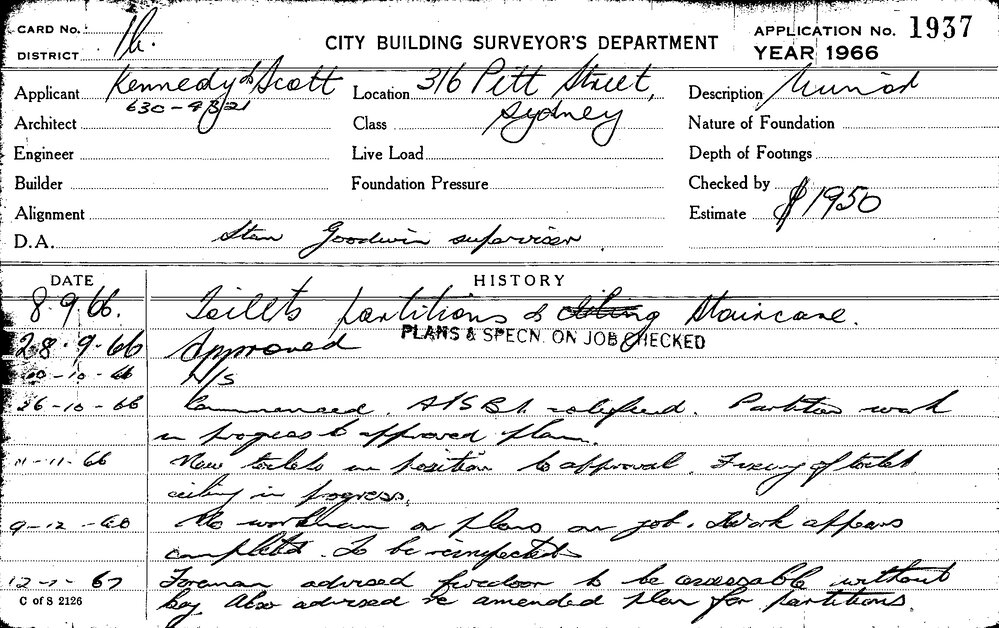 CARD No.
DISTRICT 1b.
CITY BUILDING SURVEYOR'S DEPARTMENT
APPLICATION No. 1937
YEAR 1966
Applicant Kennedy & Scott
630-4821
Location 316 Pitt Street,
Sydney
Description Minor
Architect
Class
Nature of Foundation
Engineer
Live Load
Depth of Footings
Builder
Foundation Pressure
Checked by
Alignment
Estimate $1950
D.A. Stan Goodwin supervisor.
DATE HISTORY
8.9.66. Toilets partitions & Staircase.
PLANS & SPECN. ON JOB CHECKED
28.9.66 Approved
-10-66 N/S
26-10-66 Commenced. Partition work
in progress to approved plan.
11-11-66 New toilets in position to approval. Fixing of toilet
ceiling in progress.
9-12-66 No workmen or plans on job. Work appears
completed. To be reinspected
12-1-67 Foreman advised firedoor to be accessable without
key. Also advised re amended plan for partitions.
C of S 2126